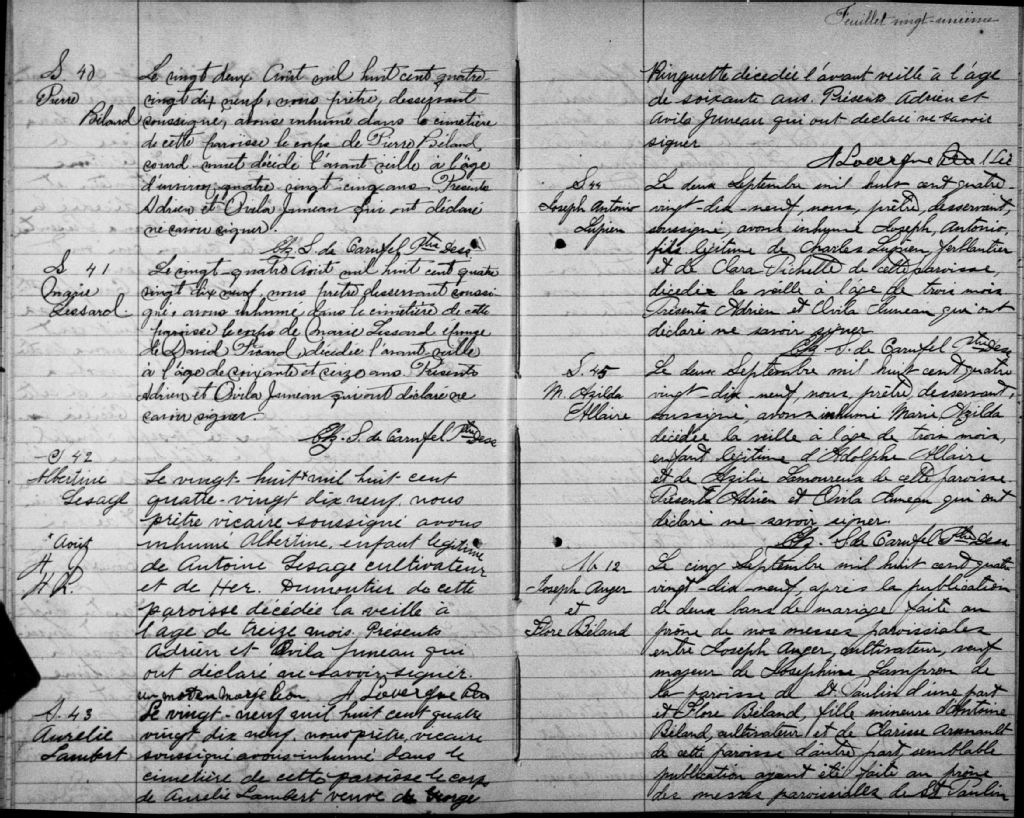 Feuillet vingt-unième
S 40
Pierre
Béland
Le vingt deux Août mil huit cent quatre
vingt dix neuf, nous prêtre, desservant
soussigné, avons inhumé dans le cimetière
de cette paroisse le corps de Pierre Béland,
sourd muet décédé l'avant veille à l'âge
d'environ quatre vingt cinq ans. Présents
Adrien et Ovila Juneau qui ont déclaré
ne savoir signer.
Chs. S. de Carufel Ptre Desst
S 41
Marie
Lessard
Le vingt quatre Août mil huit cent quatre
vingt dix neuf, nous prêtre desservant soussi
gné, avons inhumé dans le cimetière de cette
paroisse le corps de Marie Lessard épouse
de David Picard, décédée l'avant-veille
à l'âge de soixante et seize ans. Présents
Adrien et Ovila Juneau qui ont déclaré ne
savoir signer
Chs. S. de Carufel Ptre Desst
S 42
Albertine
Lesage
* Août
Le vingt-huit* mil huit cent
quatre-vingt dix neuf, nous
prêtre vicaire soussigné avons
inhumé Albertine, enfant légitime
de Antoine Lesage cultivateur
et de Her. Dumoutier de cette
paroisse décédée la veille à
l'age de treize mois. Présents
Adrien et Ovila Juneau qui
ont déclaré ne savoir signer.
un mot en marge bon A Lavergne Ptre
S. 43
Aurelie
Lambert
Le vingt-neuf mil huit cent quatre
vingt dix neuf, nous prêtre, vicaire
soussigné avons inhumé dans le
cimetière de cette paroisse le corps
de Aurelie Lambert veuve de George
Ringuette décédée l'avant veille à l'âge
de soixante ans. Présents Adrien et
Avila Juneau qui ont déclaré ne savoir
signer
A Lavergne Ptre
S. 44
Joseph Antonio
Lupien
Le deux Septembre mil huit cent quatre-
vingt-dix-neuf, nous, prêtre, desservant,
soussigné, avons inhumé Joseph, Antonio,
fils légitime de Charles Lupien, ferblantier
et de Clara Pichette de cette paroisse,
décédé la veille à l'age de trois mois
Présents Adrien et Ovila Juneau qui ont
déclaré ne savoir signer
Chs. S. de Carufel Ptre Desst
S. 45
M. Azilda
Allaire
Le deux Septembre mil huit cent quatre
vingt-dix-neuf, nous, prêtre, desservant,
soussigné, avons inhumé Marie Azilda
décédée la veille à l'age de trois mois,
enfant légitime d'Adolphe Allaire
et de Azilie Lamoureux de cette paroisse.
Présents Adrien et Ovila Juneau qui ont
déclaré ne savoir signer.
Chs. S de Carufel Ptre Desst
M 12
Joseph Auger
et
Flore Béland
Le cinq Septembre mil huit cent quatre
vingt-dix-neuf, après la publication
de deux bans de mariage faite au
prône de nos messes paroissiales
entre Joseph Auger, cultivateur, veuf
majeur de Josephine Lampron de
la paroisse de St. Paulin d'une part
et Flore Béland, fille mineure d'Antoine
Béland, cultivateur et de Clarisse Arsenault
de cette paroisse d'autre part semblable
publication ayant été faite au prône
des messes paroissiales de St Paulin